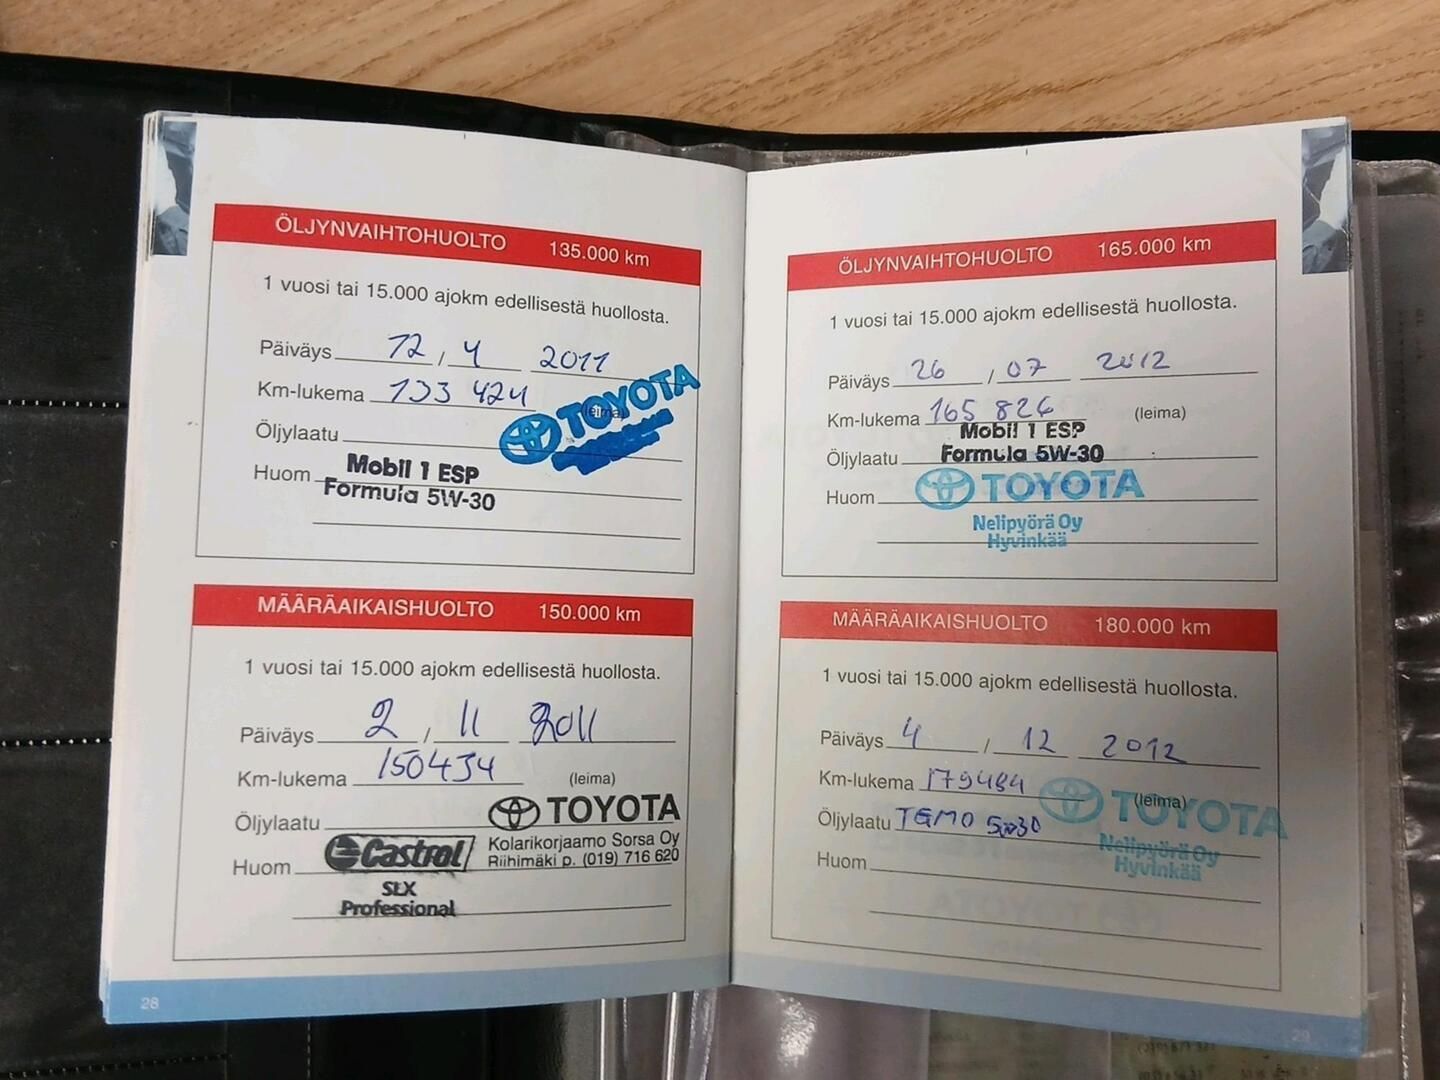 ÖLJYNVAIHTOHUOLTO 135.000 km
1 vuosi tai 15.000 ajokm edellisestä huollosta.
Päiväys 12 / 4 2011
Km-lukema 133 424
(leima)
TOYOTA
Öljylaatu
Huom
Mobil 1 ESP
Formula 5W-30
MÄÄRÄAIKAISHUOLTO 150.000 km
1 vuosi tai 15.000 ajokm edellisestä huollosta.
Päiväys 2 / 11 2011
Km-lukema 150434 (leima)
Öljylaatu TOYOTA
Kolarikorjaamo Sorsa Oy
Riihimäki p. (019) 716 620
Huom Castrol
SLX
Professional
28
ÖLJYNVAIHTOHUOLTO 165.000 km
1 vuosi tai 15.000 ajokm edellisestä huollosta.
Päiväys 26 / 07 2012
Km-lukema 165 826 (leima)
Mobil 1 ESP
Öljylaatu Formula 5W-30
Huom TOYOTA
Nelipyörä Oy
Hyvinkää
MÄÄRÄAIKAISHUOLTO 180.000 km
1 vuosi tai 15.000 ajokm edellisestä huollosta.
Päiväys 4 / 12 2012
Km-lukema 179484 (leima)
TOYOTA
Öljylaatu TGMO 5w30
Nelipyörä Oy
Hyvinkää
Huom
29